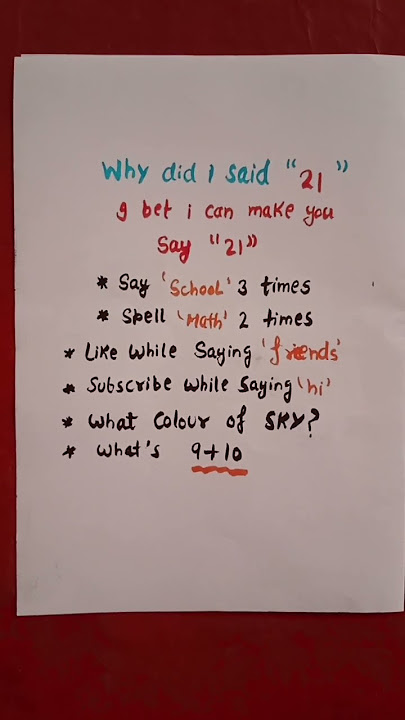 Why did I said "21"
I bet i can make you
Say "21"
* Say 'School' 3 times
* Spell 'Math' 2 times
* Like While Saying 'friends'
* Subscribe while Saying 'hi'
* What Colour of SKY?
* What's 9+10